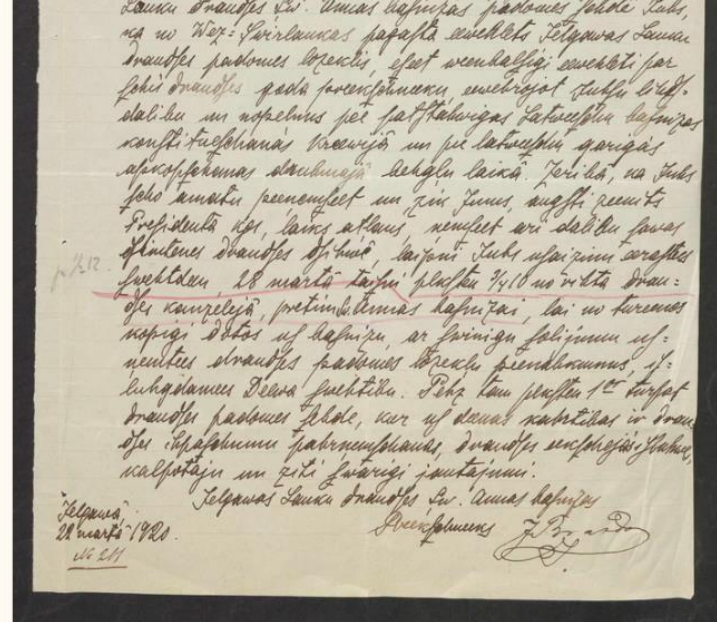 Lauku draudses Sw. Annas basnizas padomes sehdē Juhs,
ka no Wez-Swirlaukas pagasta eewehlets Jelgawas Lauku
draudses padomes lozeklis, esat weenbalsigi eewehleti par
schis draudses goda preekschneeku, eewehrojot Juhsu lihds-
dalibu un nopelnus pee patstahwigas Latweeschu basnizas
konstitueschanās Kreewijā un pee latweeschu garigās
apkopschanas daudzmajā behglu laikā. Zeribā, ka Juhs
scho amatu peenemseet un, zik Jums, augsti zeenits
Presidenta kgs, laiks atlaus, nemseet ari dalibu sawas
dsimtenes draudses dsihwē, laipni Juhs usaizinu eerastees
swehtdeen, 28 martā taisni plksten 3/4 10 no rihta drau-
dses kanzelejā, pretim Sw. Annas basnizai, lai no tureenes
kopigi dotos us basnizu, ar swinigu solijumu us-
nemtees draudses padomes lozeklu peenahkumus, is-
luhgdamees Deewa swehtibu. Pehz tam plksten 1os turpat
draudses padomes sehde, kur us deenas kahrtibas ir drau-
dses ihpaschumu pahrnemschanas, draudses eekschejās isbuhwes,
kalpotaju un ziti swarigi jautajumi.
Jelgawas Lauku draudses Sw. Annas basnizas
Preekschneeks
Jelgawā,
22 martā 1920.
№ 211